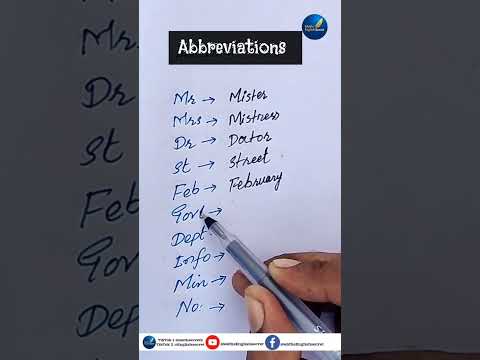 Abbreviations
Mr → Mister
Mrs → Mistress
Dr → Doctor
St → Street
Feb → February
Govt →
Dept.
Info →
Min →
No: →